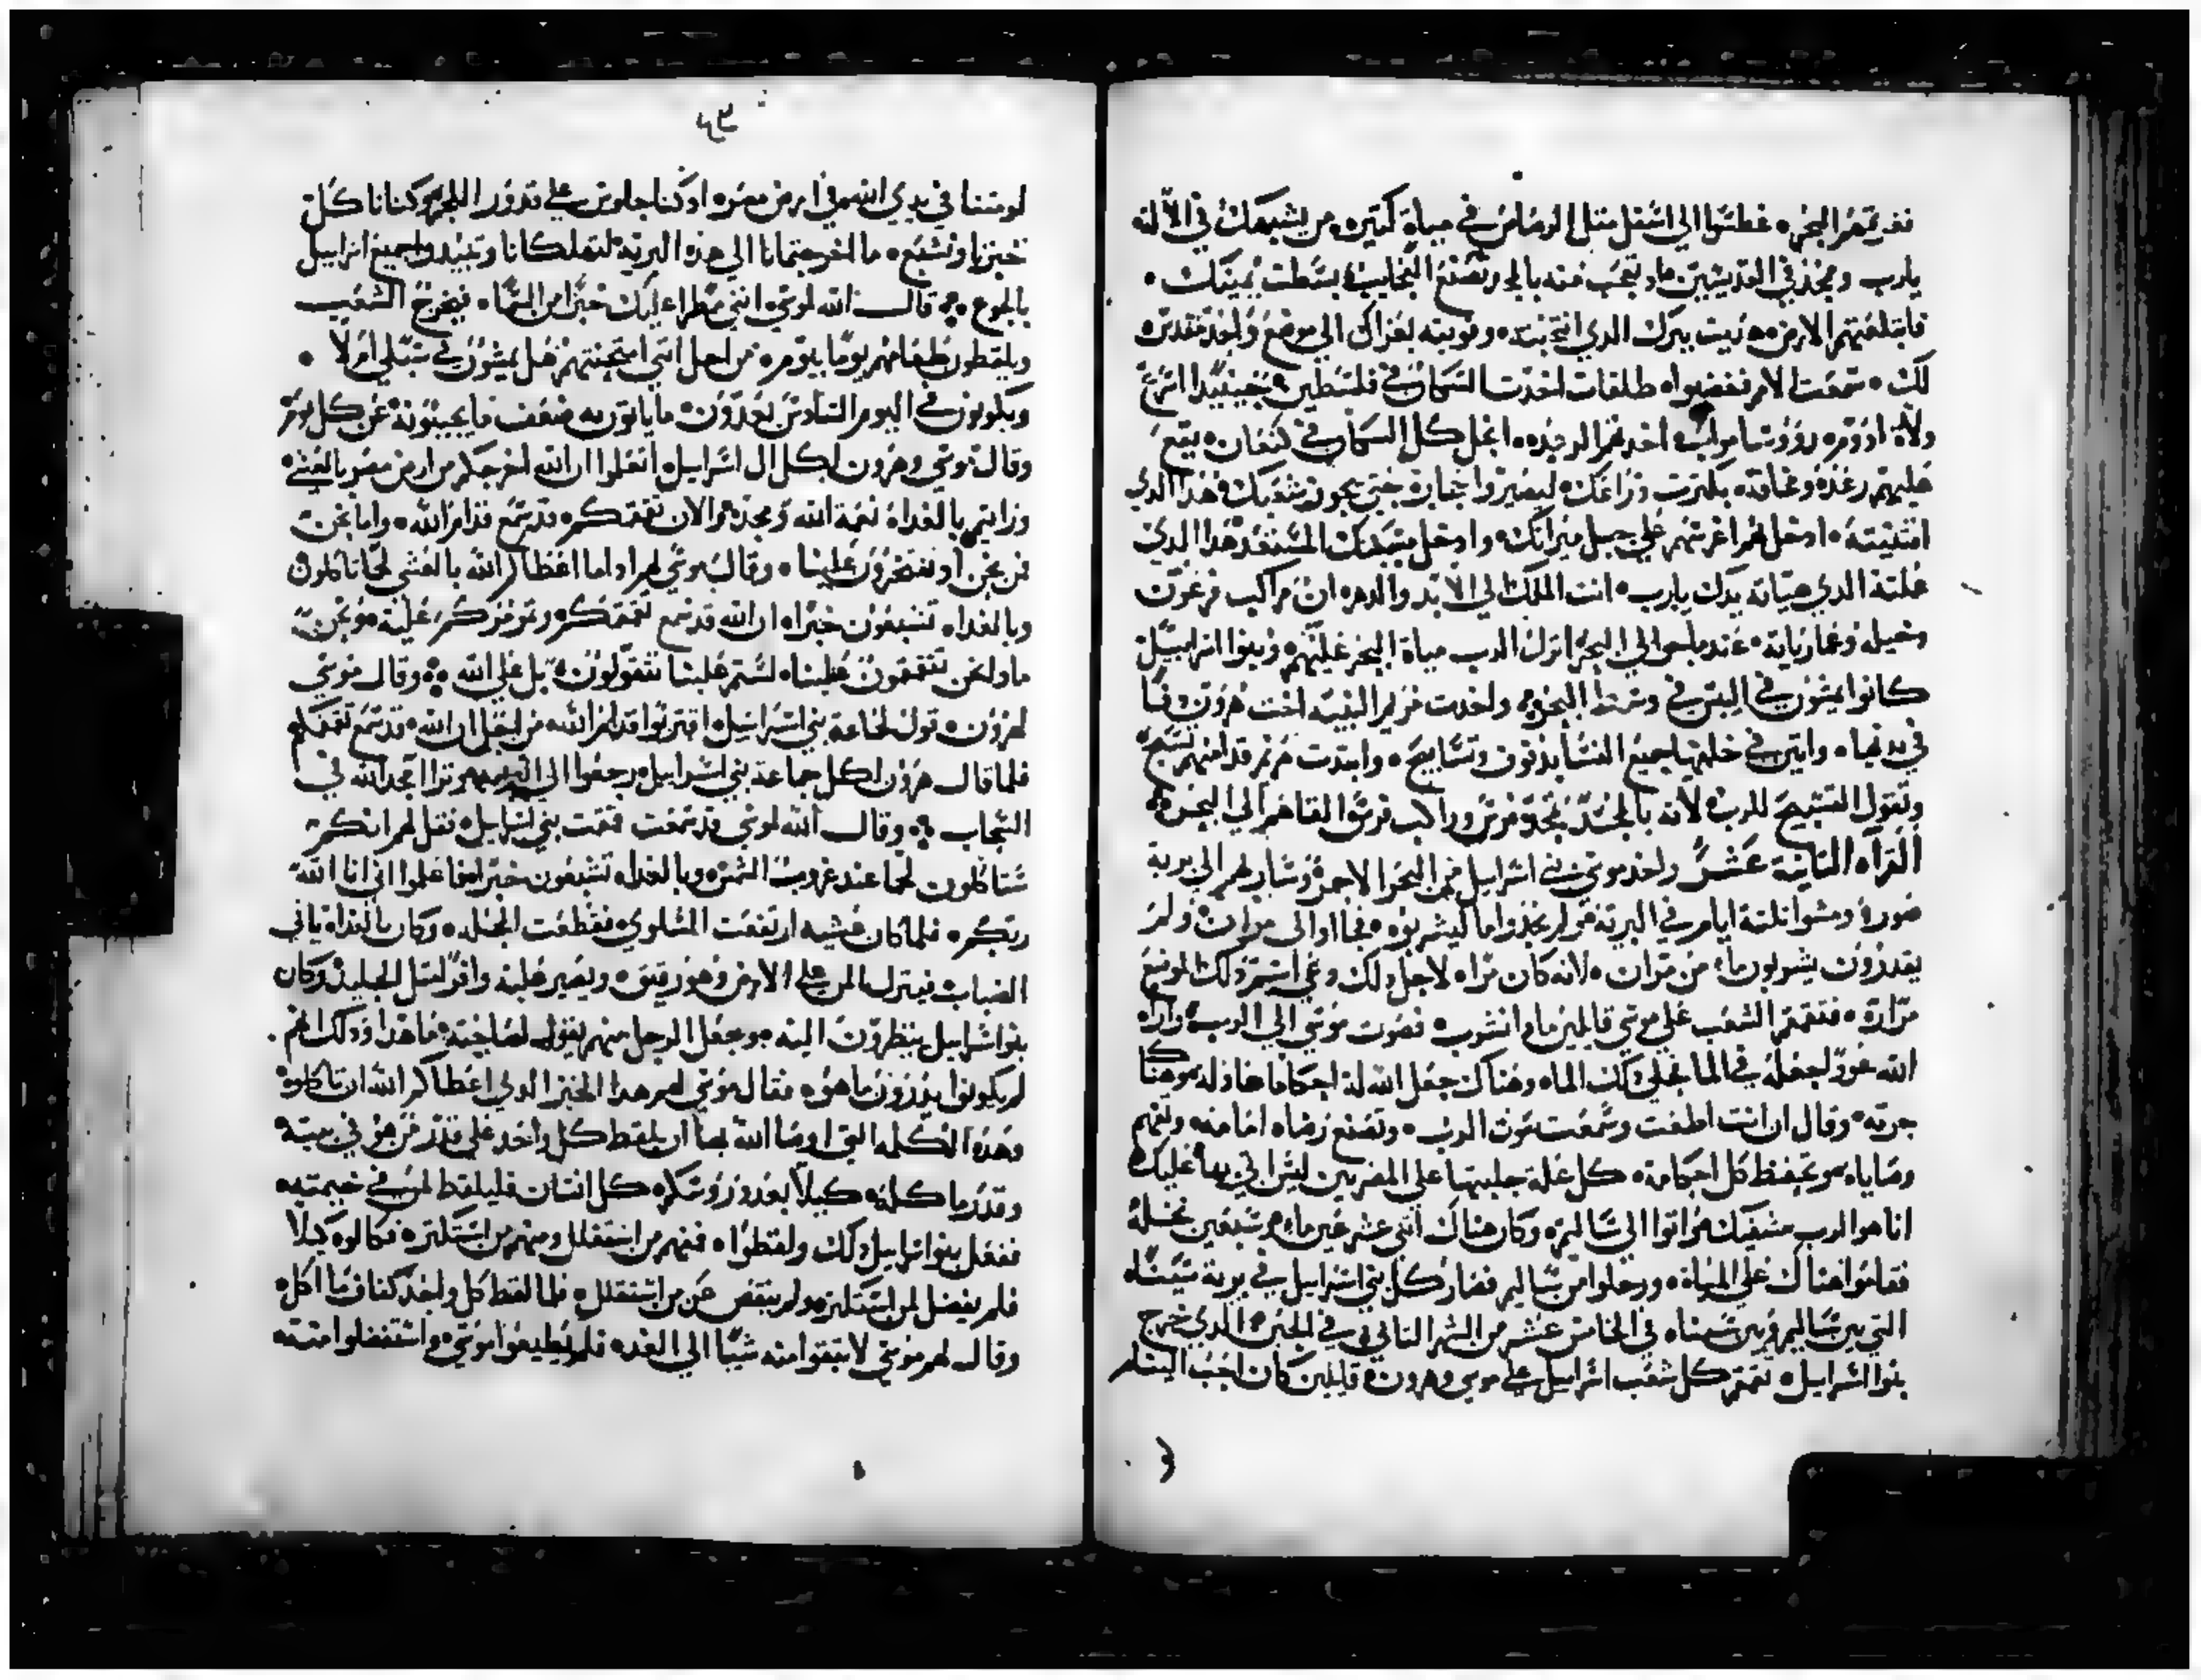 فغرقهم البحر ۰ غطسوا الي اسفل متل الرصاص في مياة كتيره من يشبهك في الالهة
يارب وممجد في القديسين مادا تعجب منه بالمجد وتصنع العجايب بسطت يمينك ۰
فابتلعتهم الارض هديت ببرك الدي انتجبته ۰ وقويته بعزاك الي موضع واحد مقدس
لك ۰ سمعت الامم فغضبوا طلقات اخدت السكان في فلسطين حينيدا اسرع
ولاة ادوم رووسا مواب اخدتهم الرعده انحل كل السكان في كنعان يقع
عليهم رعده ومخافه بكترت دراعك ليصيروا حجاره حتي يجوز شعبك هدا الدي
اقتنيته ۰ ادخلهم اغرسهم علي جبل ميراتك وادخل مسكنك المستعد هدا الدي
عملته الدي هياته يدك يارب ۰ انت الملك الي الابد والدهر ان مراكب فرعون
وخيله وعمارياته عندما دخلوا الي البحر انزل الرب مياة البحر عليهم وبنوا اسراييل
كانوا يمشون في اليبس في وسط البحر واخدت مريم النبيه اخت هرون دفا
في يدها ۰ واتين في خلفها جميع النسا بدفوف وتسابيح ۰ وابتدت مريم قدامهم تسبح
وتقول التسبيح للرب لانه بالمجد تمجد فرس وراكب فرس القاهم الي البحر
القراه التانية عشر واخد موسي بني اسراييل من البحر الاحمر وسار بهم الي برية
صور ومشوا تلتة ايام في البرية ولم يجدوا ما ليشربوه فجاوا الي مران ولم
يقدرون يشربون ماء من مران ۰ لانه كان مرا لاجل دلك دعي اسم دلك الموضع
مراره ۰ فتقمقم الشعب علي موسي قايلين مادا نشرب ۰ فصوت موسي الي الرب واراه
الله عود لجعله في الما فحلي دلك الماء وهناك جعل الله له احكاما هادله وهناك
جربه ۰ وقال ان انت اطعت وسمعت صوت الرب ۰ وتصنع رضاه امامه وتفهم
وصاياه وتحفظ كل احكامه ۰ كل علة جلبتها علي المصريين ليس اتي بها عليك
انا هو الرب مشفيك واتوا الي ساليم وكان هناك اتني عشر عين ماء وسبعين نخله
فقاموا هناك علي المياة ۰ ورحلوا من ساليم فصار كل بني اسراييل في برية سيناء
التي بين ساليم وبين سيناء في الخامس عشر من الشهر التاني في الحين الدي خرج
بنوا اسراييل تقمقم كل شعب اسراييل علي موسي وهرون قايلين كان احب الينا
لو متنا في يدي الله في ارض مصر اد كنا جلوس علي قدور اللحم وكنا ناكل
خبزنا ونشبع ۰ ما اخرجتمانا الي هده البرية لتهلكانا وتبيدوا جميع اسراييل
بالجوع ۰ قال الله لموسي انني مطرا عليك خبزا من السما ۰ فيخرج الشعب
ويلقطون طعامهم يوما بيوم ۰ من اجل انني امتحنتهم هل يمشون في سبلي ام لا ۰
ويكونون في اليوم السادس يعدون ما ياتون به ضعف ما يجيبونه عن كل يوم
وقال موسي وهرون لكل ال اسراييل اعلموا ان الله اخرجكم من ارض مصر بالعشي
ورايتم بالغداه نعمة الله ومجده والان تقمقمكم قد سمع قدام الله ۰ واما نحن
من نحن اد تقمقمون علينا ۰ وقال موسي لهم اداما اعطاكم الله بالعشي لحما تاكلون
وبالغداه تشبعون خبزا ان الله قد سمع تقمقمكم وتمزمزكم عليه ونحن
مادا نحن تتقمقمون علينا ۰ لستم علينا تتقولون بل علي الله ۰ وقال موسي
لهرون قول لجماعة بني اسراييل اقتربوا قدام الله من لجل ان الله قد سمع تقمقمكم
فلما قال هرون لكل جماعة بني اسراييل رجعوا الي البريه وتراا مجد الله في
السحاب ۰ وقال الله لموسي قد سمعت تقمقمت بني اسراييل ۰ فقل لهم انكم
ستاكلون لحما عند غروب الشمس وبالغداه تشبعون خبزا فاعلموا اني انا الله
ربكم ۰ فلما كان عشيه ارتفعت السلوي فغطت المحله ۰ وكان بالغداه ياتي
الضباب فينزل المن علي الارض وهو رقيق ويصير عليه وافر لمتل الجليد وكان
بنو اسراييل ينظرون اليه وجعل الرجل منهم يقول لصاحبه ماهدا ودلك انهم ۰
لم يكونوا يدرون ما هو فقال موسي لهم هدا الخبز الدي اعطاكم الله ان تاكلوه
وهده الكلمه التي اوصا الله بها ان يلقط كل واحد علي قدر من هو في بيته
وقدر ما كله كيلا بعدد رووسكم كل انسان فليلقط لمن في خيمته
ففعل بنوا اسراييل دلك ولقطوا ۰ فمنهم من استقلل ومنهم من استكتر فكالوه كيلا
فلم يفضل لمن استكتر ولم ينقص عن من استقلل فلما لقط كل واحد كفاف ما اكله
وقال لهم موسي لا تبقوا منه شيا الي الغد فلم يطيعوا موسي واستفضلوا منه